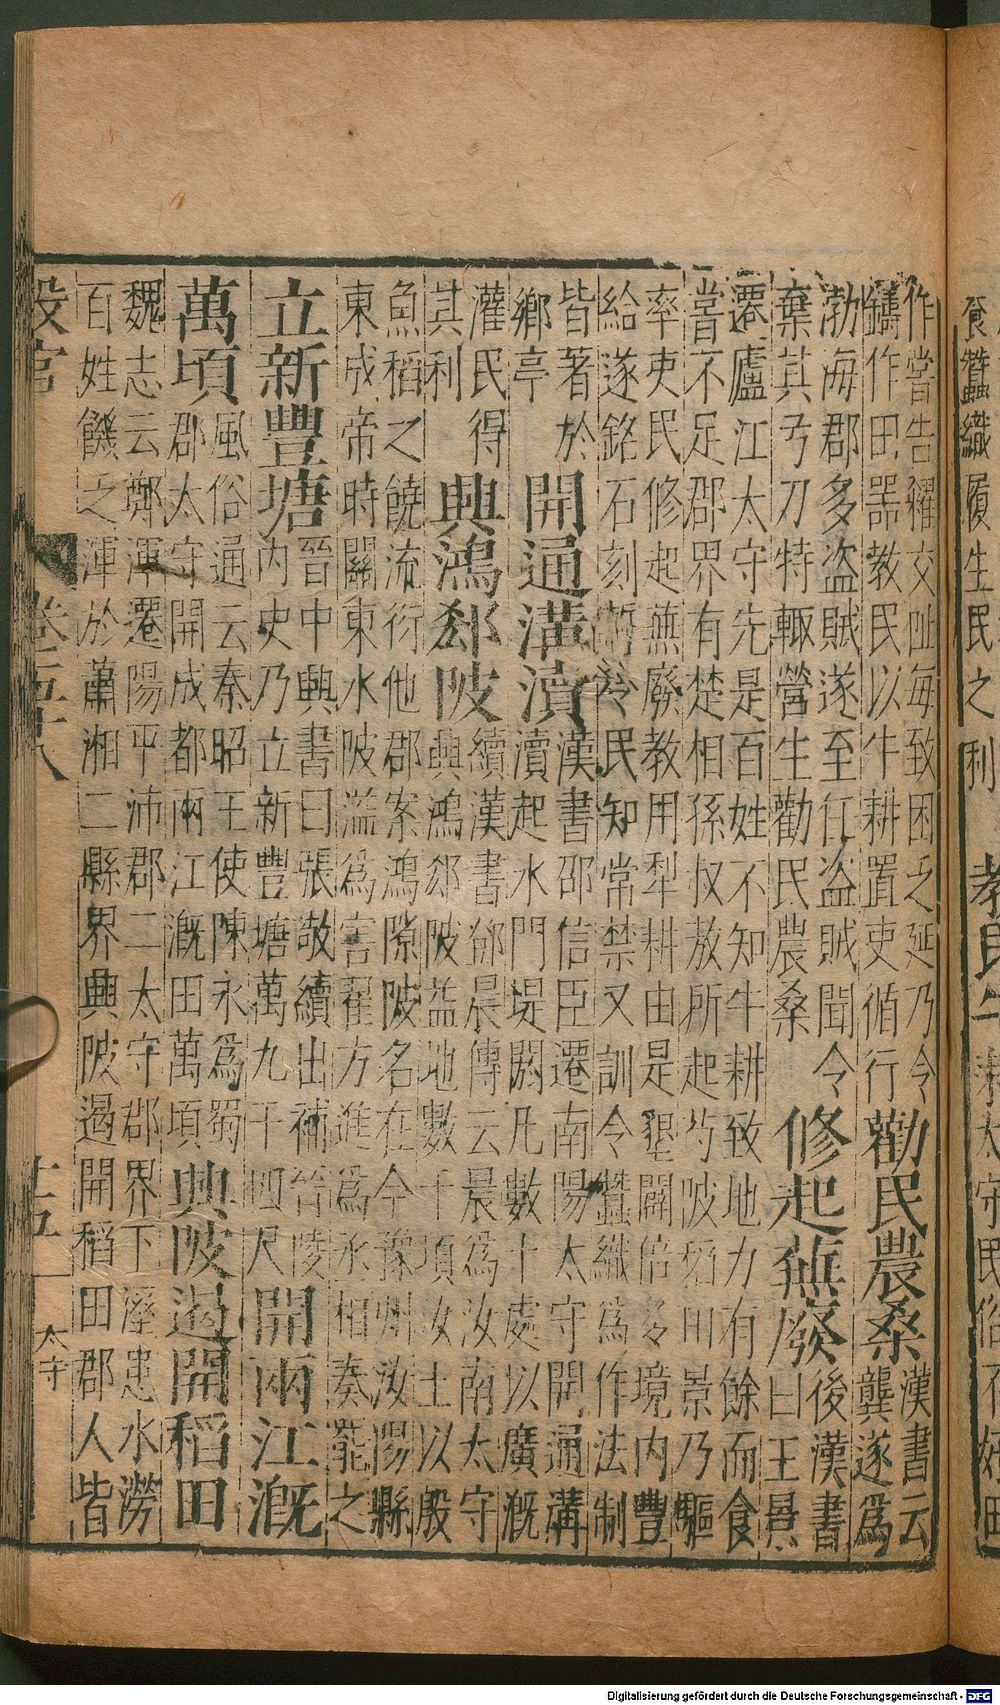 食蠶織履生民之利
太守民俗不好田
作嘗告糴交阯每致困乏延乃令
鑄作田器教民以牛耕置吏循行
勸民農桑
漢書云
龔遂爲
渤海郡多盗賊遂至任盗賊聞令
棄其弓刀特輙營生勸民農桑
修起蕪廢
後漢書
曰王景
遷廬江太守先是百姓不知牛耕致地力有餘而食
嘗不足郡界有楚相孫叔敖所起芍陂稻田景乃驅
率吏民修起蕪廢教用犁耕由是墾闢倍多境内豐
給遂銘石刻誓令民知常禁又訓令蠶織爲作法制
皆著於
鄉亭
開通溝瀆
漢書邵信臣遷南陽太守開通溝
瀆起水門堤閼凡數十處以廣溉
灌民得
其利
興鴻郄陂
續漢書鄧晨傳云晨爲汝南太守
興鴻郄陂益地數千頃汝土以殷
魚稻之饒流衍他郡案鴻隙陂名在今豫州汝陽縣
東成帝時關東水陂溢爲害翟方進爲丞相奏罷之
立新豐塘
晉中興書曰張敬續出補晉陵
内史乃立新豐塘萬九千四尺
開兩江溉
萬頃
風俗通云秦昭王使陳永爲蜀
郡太守開成都兩江溉田萬頃
興陂遏開稻田
魏志云鄭渾遷陽平沛郡二太守郡界下溼患水澇
百姓饑乏渾於蕭湘二縣界興陂遏開稻田郡人皆
設官
卷五十八
十五
太守
Digitalisierung gefördert durch die Deutsche Forschungsgemeinschaft - DFG